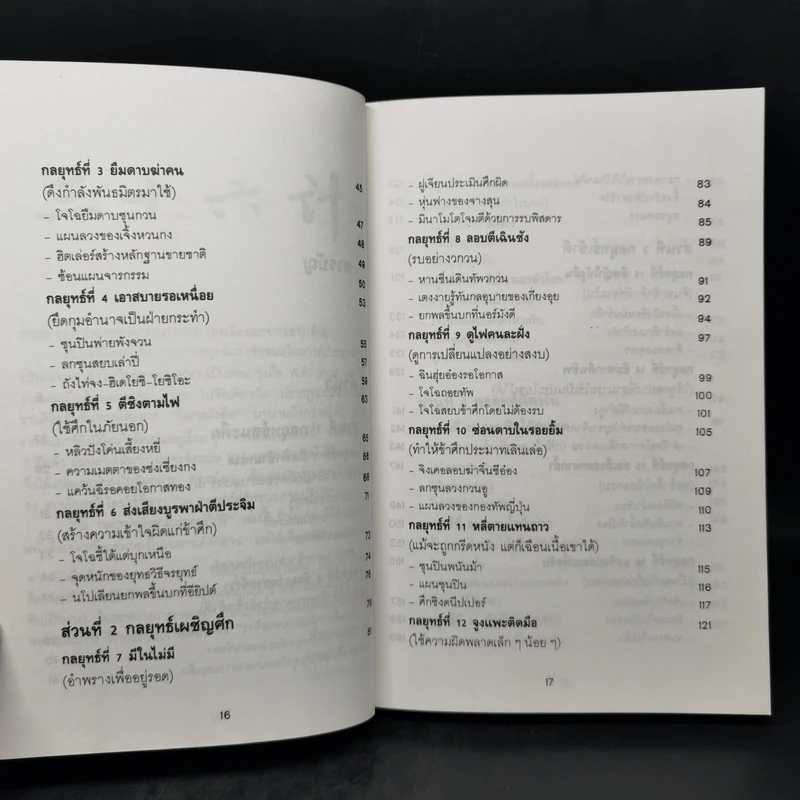 กลยุทธ์ที่ 3 ยืมดาบฆ่าคน 45
(ดึงกำลังพันธมิตรมาใช้)
- โจโฉยืมดาบซุนกวน 47
- แผนลวงของเจิ้งหวนกง 48
- ฮิตเล่อร์สร้างหลักฐานขายชาติ 49
- ซ้อนแผนจารกรรม 50
กลยุทธ์ที่ 4 เอาสบายรอเหนื่อย 53
(ยึดกุมอำนาจเป็นฝ่ายกระทำ)
- ซุนปินพ่ายพังจวน 55
- ลกซุนสยบเล่าปี่ 57
- ถังไท่จง-ฮิเดโยชิ-โยชิโอะ 59
กลยุทธ์ที่ 5 ตีชิงตามไฟ 63
(ใช้ศึกในภัยนอก)
- หลิวปังโค่นเสี้ยงหยี่ 65
- ความเมตตาของซ่งเซี่ยงกง 66
- แคว้นฉีรอคอยโอกาสทอง 68
กลยุทธ์ที่ 6 ส่งเสียงบูรพาฝ่าตีประจิม 71
(สร้างความเข้าใจผิดแก่ข้าศึก)
- โจโฉชี้ใต้แต่บุกเหนือ 73
- จุดหนักของยุทธวิธีจรยุทธ์ 74
- นโปเลียนยกพลขึ้นบกที่อียิปต์ 76
ส่วนที่ 2 กลยุทธ์เผชิญศึก 79
กลยุทธ์ที่ 7 มีในไม่มี 81
(อำพรางเพื่ออยู่รอด)
16
- ฝูเจียนประเมินศึกผิด 83
- หุ่นฟางของจางสุน 84
- มินาโมโตโจมตีด้วยการรบพิสดาร 85
กลยุทธ์ที่ 8 ลอบตีเฉินซัง 89
(รบอย่างวกวน)
- หานซิ่นเดินทัพวกวน 91
- เตงงายรู้ทันกลอุบายของเกียงอุย 92
- ยกพลขึ้นบกที่นอร์มังดี 94
กลยุทธ์ที่ 9 ดูไฟคนละฝั่ง 97
(ดูการเปลี่ยนแปลงอย่างสงบ)
- ฉินฮุ่ยอ๋องรอโอกาส 99
- โจโฉถอยทัพ 100
- โจโฉสยบข้าศึกโดยไม่ต้องรบ 101
กลยุทธ์ที่ 10 ซ่อนดาบในรอยยิ้ม 105
(ทำให้ข้าศึกประมาทเลินเล่อ)
- จิงเคอลอบฆ่าจิ๋นซีอ๋อง 107
- ลกซุนลวงกวนอู 109
- แผนลวงของกองทัพญี่ปุ่น 110
กลยุทธ์ที่ 11 หลี่ตายแทนถาว 113
(แม้จะถูกกรีดหนัง แต่ก็เฉือนเนื้อเขาได้)
- ซุนปินพนันม้า 115
- แผนซุนปิน 116
- ศึกชิงดนีปเปอร์ 117
กลยุทธ์ที่ 12 จูงแพะติดมือ 121
(ใช้ความผิดพลาดเล็ก ๆ น้อย ๆ)
17